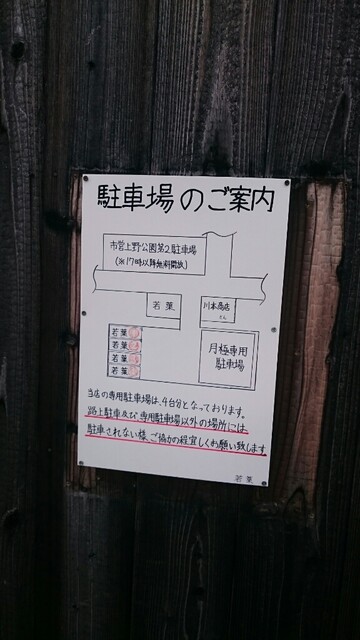 駐車場のご案内
市営上野公園第2駐車場
(※17時以降無料開放)
若葉
川本商店
さん
若葉
若葉
若葉
若葉
月極専用
駐車場
当店の専用駐車場は、4台分となっております。
路上駐車及び専用駐車場以外の場所には、
駐車されない様、ご協力の程宜しくお願い致します
若葉